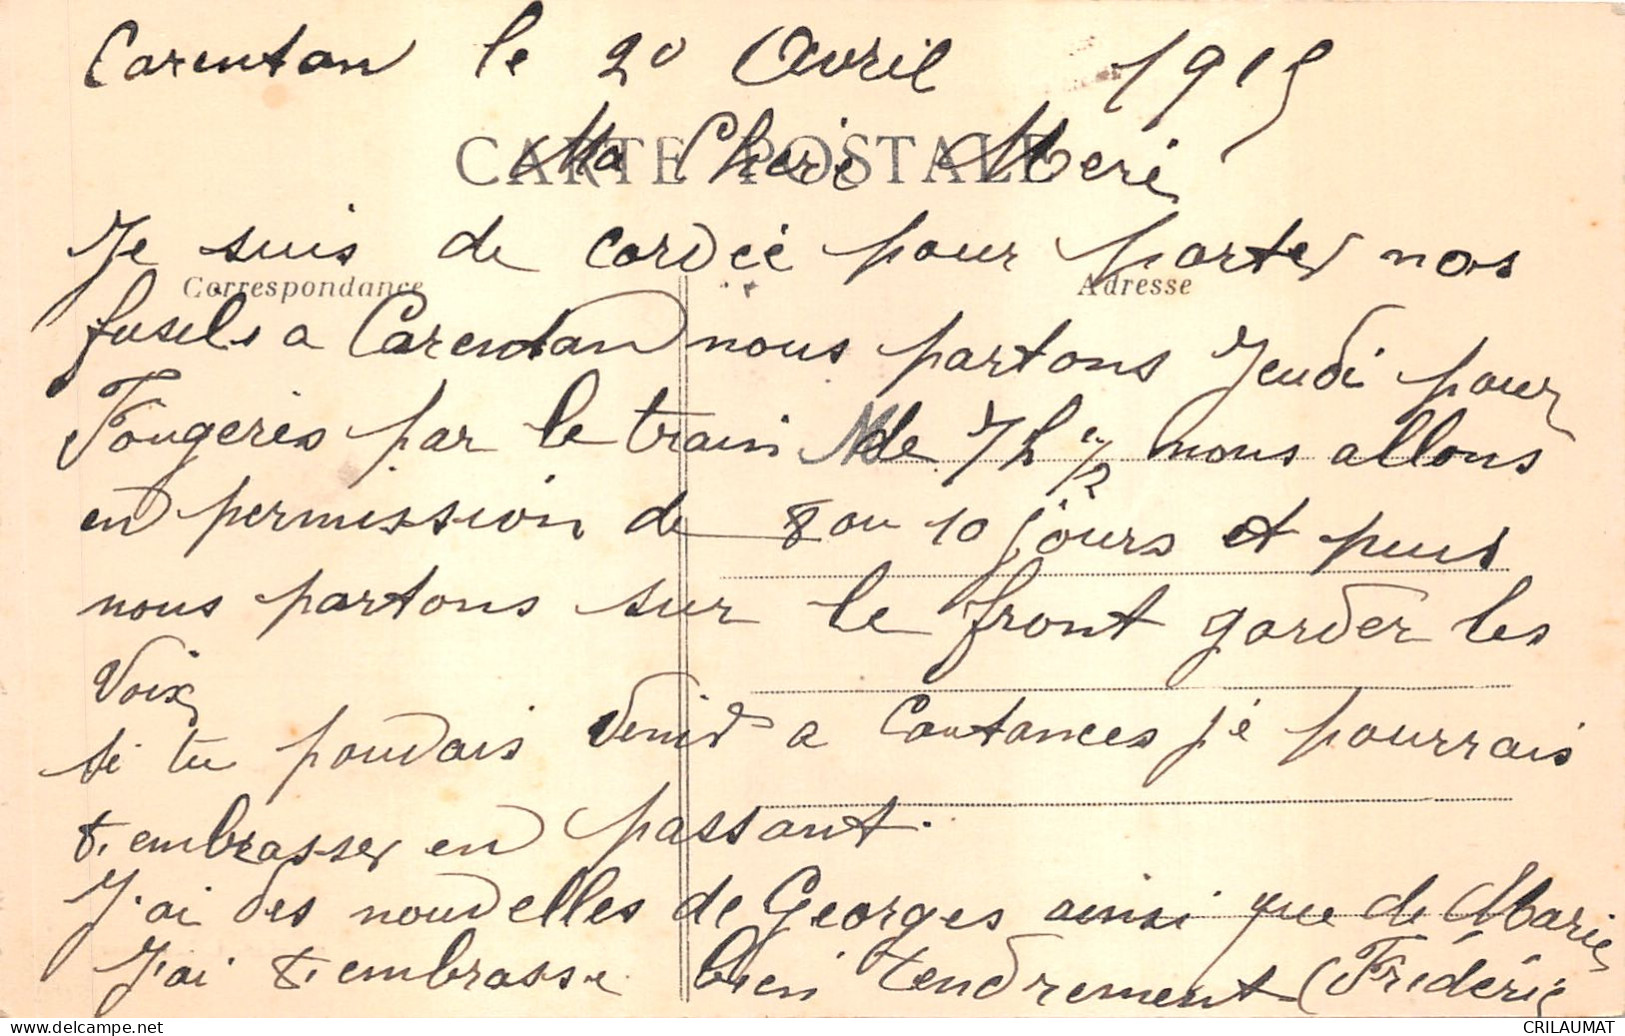 Carentan le 20 Avril 1915
CARTE POSTALE
Ma Cheri Meri
Je suis de cordéé pour porter nos
Correspondance
Adresse
fusils a Carentan nous partons Jeudi pour
Fougeres par le train de 7h en 1/2 nous allons
en permission de 8 ou 10 jours et puis
nous partons sur le front garder les
Voix
si tu pouvais venir a Coutances je pourrais
t'embrasser en passant.
J'ai des nouvelles de Georges ainsi que de Marie
J'ai t'embrasse bien tendrement Frédéric
CRILAUMAT